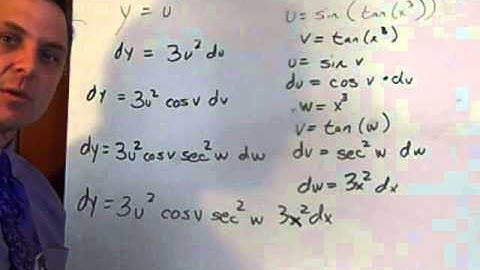 y = u
dy = 3u² du
dy = 3u² cos v dv
dy = 3u² cos v sec² w dw
dy = 3u² cos v sec² w 3x² dx
u = sin (tan(x³))
v = tan(x³)
u = sin v
du = cos v • dv
w = x³
v = tan(w)
dv = sec² w dw
dw = 3x² dx